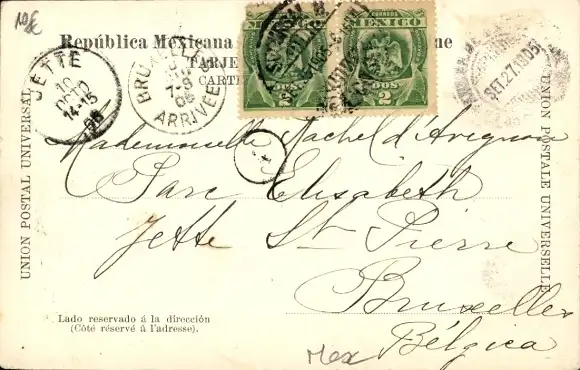 10€
República Mexicana
TARJE
CARTE
JETTE
10
OCTO
14-15
BRUXELLES
7-8
ARRIVEE
MEXICO
CORREOS
MEXICO
DOS 2
SET 27 1905
UNION POSTAL UNIVERSAL
UNION POSTALE UNIVERSELLE
Mademoiselle Rachel d'Avignon
Parc Elisabeth
Jette St Pierre
Bruxelles
Bélgica
Lado reservado á la dirección
(Côté réservé á l'adresse).
Mex